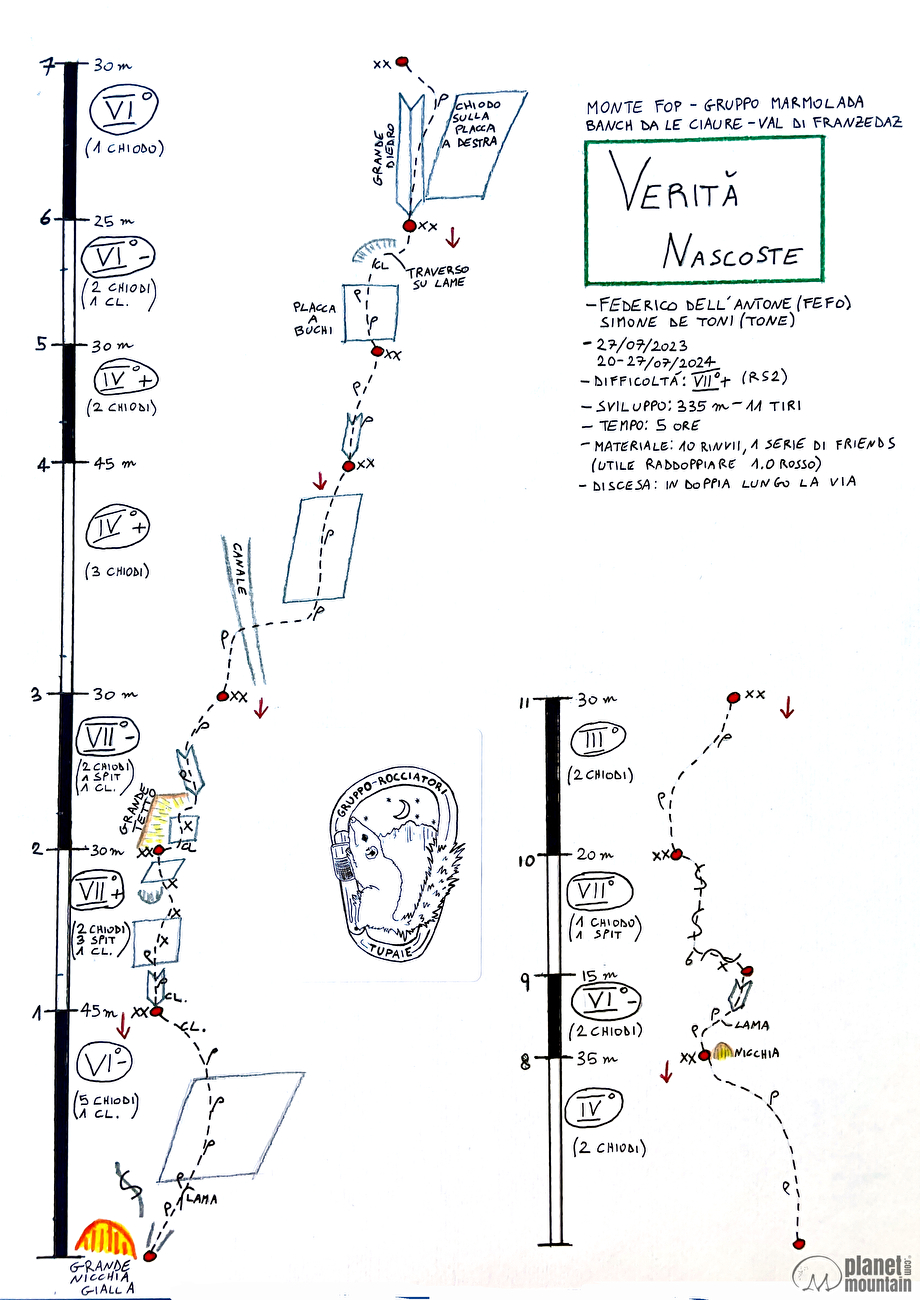 MONTE FOP - GRUPPO MARMOLADA
BANCH DA LE CIAURE - VAL DI FRANZEDAZ
VERITĂ
NASCOSTE
- FEDERICO DELL'ANTONE (FEFO)
SIMONE DE TONI (TONE)
- 27/07/2023
20-27/07/2024
- DIFFICOLTÁ: VII°+ (RS2)
- SVILUPPO: 335 m - 11 TIRI
- TEMPO: 5 ORE
- MATERIALE: 10 RINVII, 1 SERIE DI FRIENDS
(UTILE RADDOPPIARE 1.0 ROSSO)
- DISCESA: IN DOPPIA LUNGO LA VIA
7 30 m
XX
VI°
(1 CHIODO)
GRANDE
DIEDRO
CHIODO
SULLA
PLACCA
A DESTRA
6 25 m
XX
VI°-
(2 CHIODI
1 CL.)
CL
TRAVERSO
SU LAME
PLACCA
A
BUCHI
5 30 m
XX
IV°+
(2 CHIODI)
4 45 m
XX
IV°+
(3 CHIODI)
CANALE
3 30 m
XX
VII°-
(2 CHIODI
1 SPIT
1 CL.)
GRANDE
TETTO
X
CL
2 30m
XX
VII°+
X
X
X
(2 CHIODI
3 SPIT
1 CL.)
CL.
1 45 m
XX
CL.
VI°-
(5 CHIODI
1 CL.)
LAMA
GRANDE
NICCHIA
GIALLA
GRUPPO-ROCCIATORI
TUPAIE
11 30 m
XX
III°
(2 CHIODI)
10 20 m
XX
VII°
(1 CHIODO
1 SPIT)
6
X
9 15 m
VI°-
(2 CHIODI)
LAMA
8 35 m
XX
NICCHIA
IV°
(2 CHIODI)
planet
mountain
.com